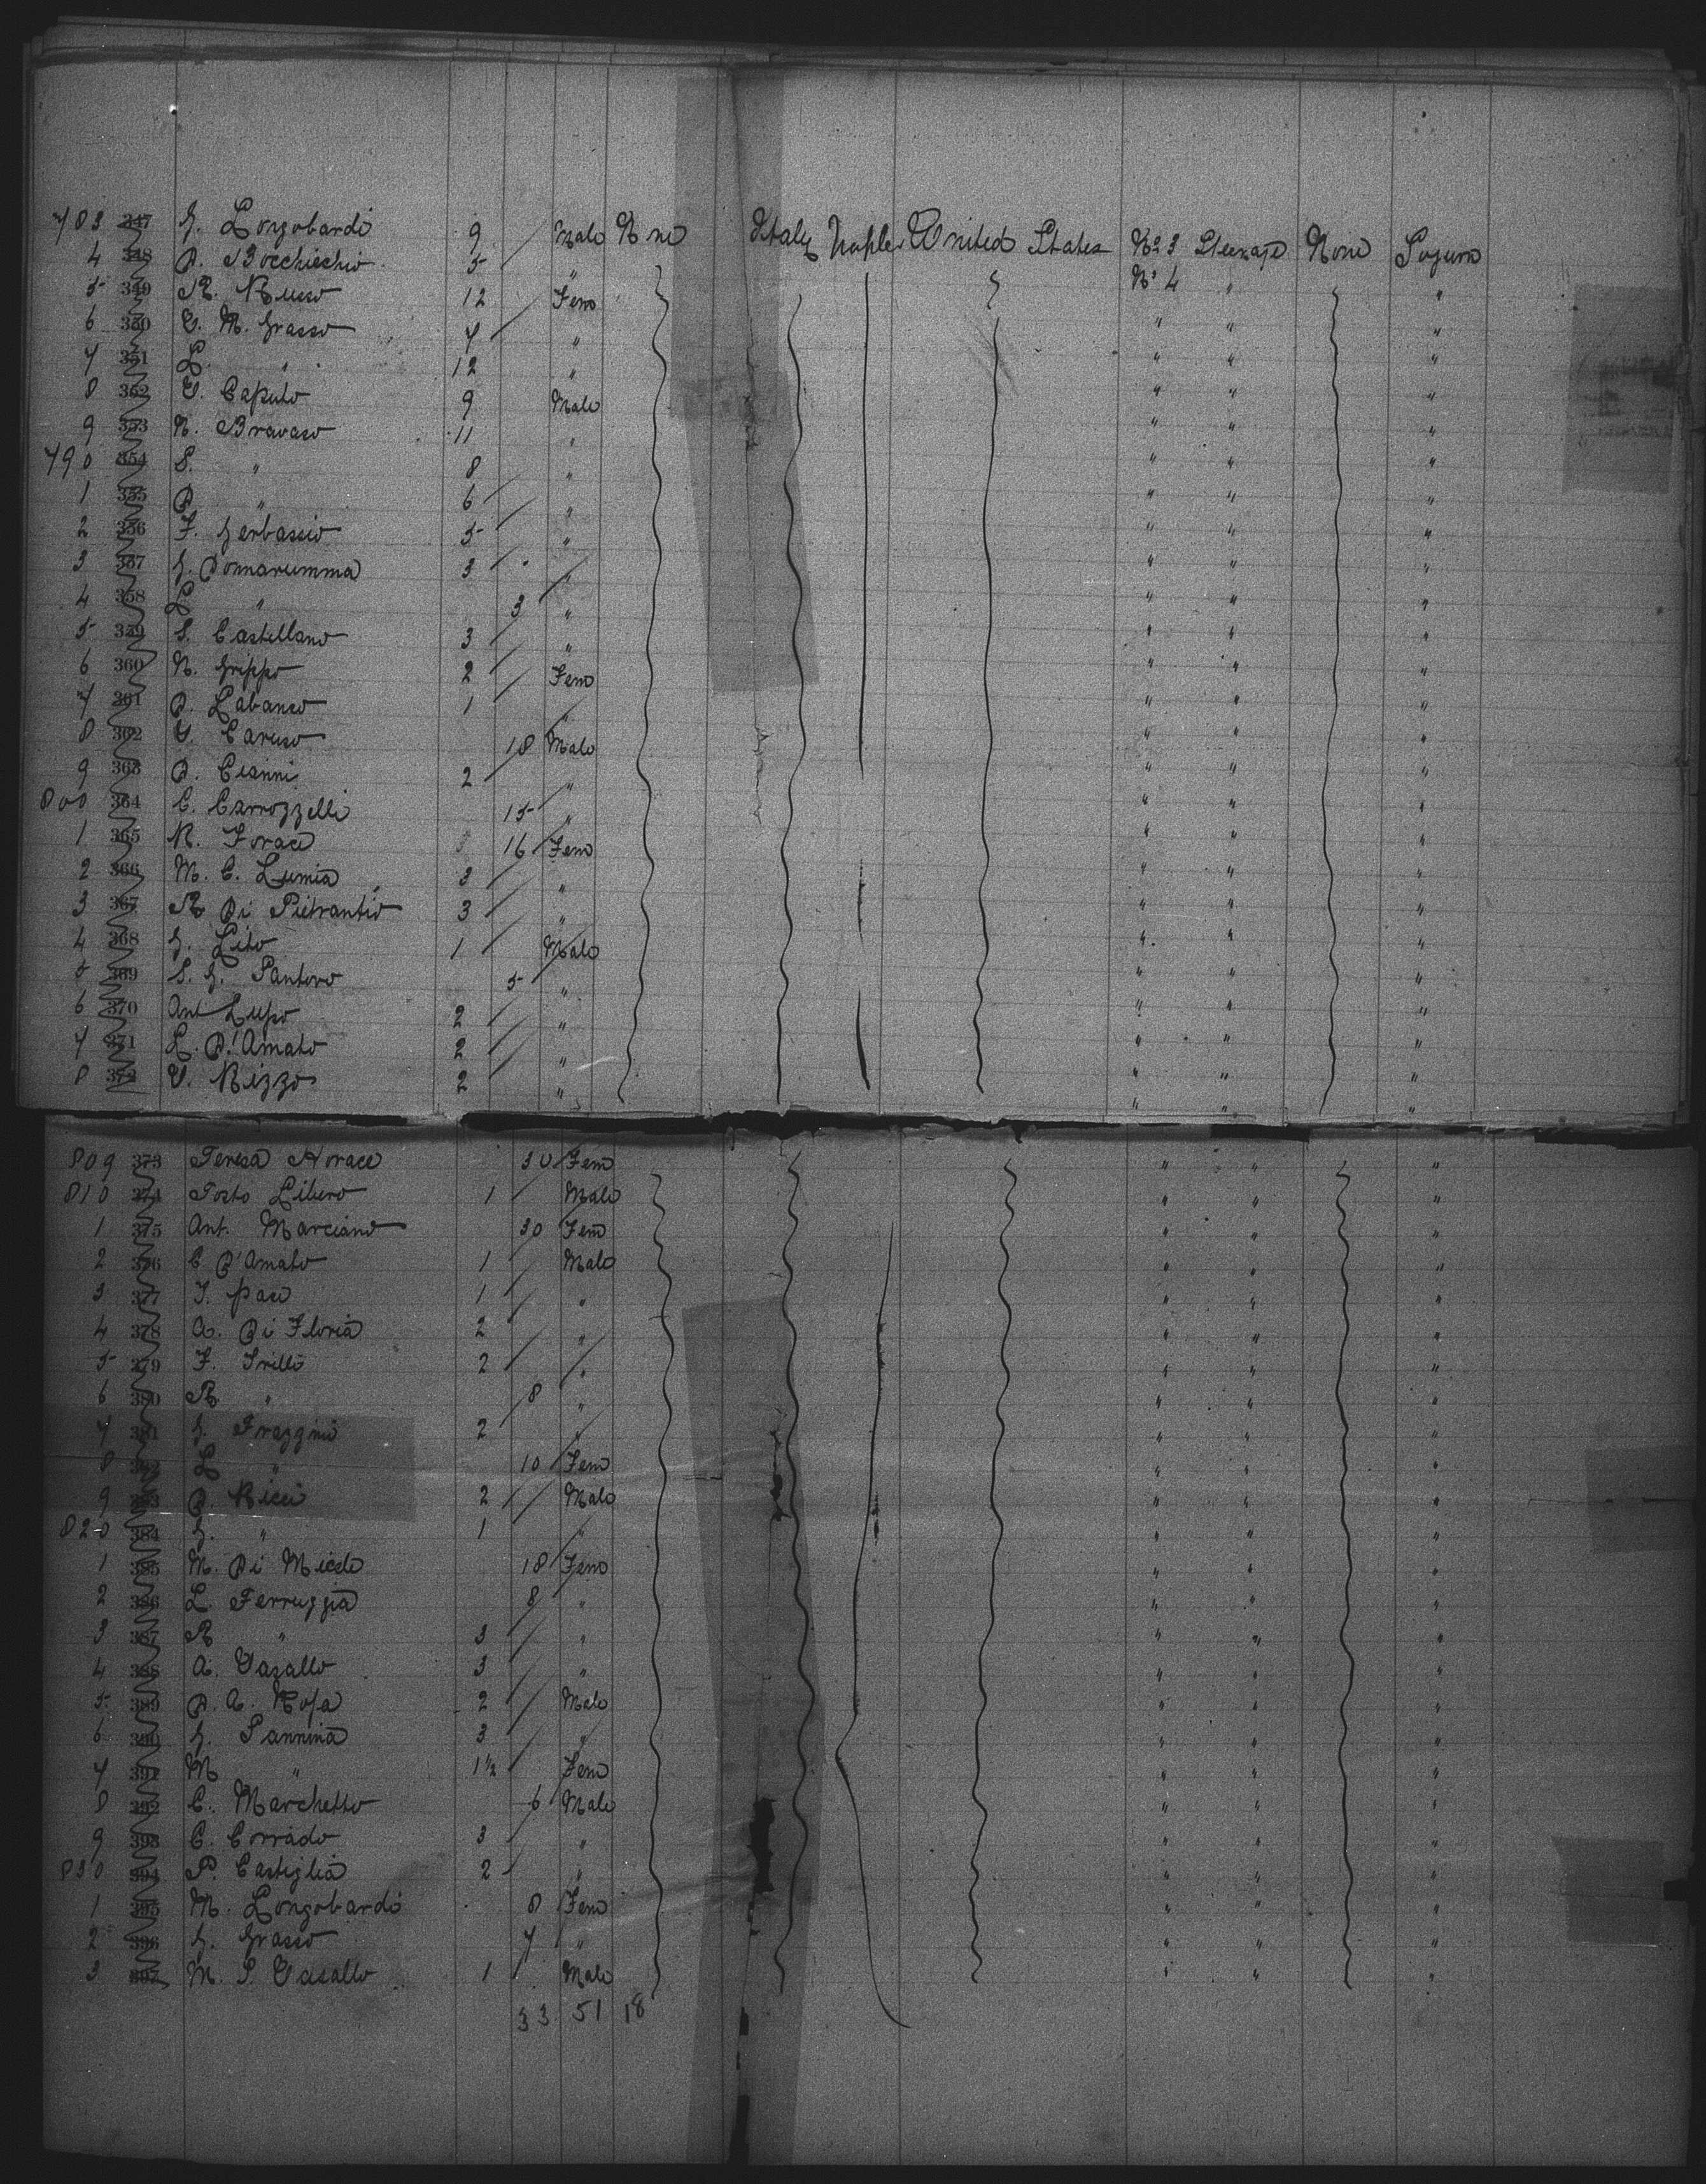 783 347 G. Longobardi 9 Male None Italy Naples United States No 3 Steerage None Sojurn
4 348 D. Bocchicchio 5 " No 4 " "
5 349 R. Russo 12 Fem " " "
6 350 V. M. Grasso 7 " " " "
7 351 L. " 12 " " " "
8 352 V. Caputo 9 Male " " "
9 353 N. Bravaso 11 " " " "
790 354 S. " 8 " " " "
1 355 D. " 6 " " " "
2 356 F. Gerbassio 5 " " " "
3 357 G. Donnarumma 3 " " " "
4 358 L " 3 " " " "
5 359 S. Castellano 3 " " " "
6 360 N. Grippo 2 Fem " " "
7 361 D. Labanco 1 " " " "
8 362 V. Caruso 10 Male " " "
9 363 D. Cianni 2 " " " "
800 364 C. Carrozzelli 15 " " " "
1 365 R. Forace 16 Fem " " "
2 366 M. C. Lumia 3 " " " "
3 367 R Di Pietrantio 3 " " " "
4 368 G. Lito 1 Male " " "
5 369 S. G. Pantero 5 " " " "
6 370 Ant Lupo 2 " " " "
7 371 L. D'Amato 2 " " " "
8 372 V. Rizzo 2 " " " "
809 373 Teresa Horace 30 Fem " " "
810 374 Tosto Libero 1 Male " " "
1 375 Ant. Marciano 30 Fem " " "
2 376 C D'Amato 1 Male " " "
3 377 I. Pace 1 " " " "
4 378 A. Di Floria 2 " " " "
5 379 F. Trillo 2 " " " "
6 380 R " 8 " " " "
7 381 G. Frazzini 2 " " " "
8 382 L " 10 Fem " " "
9 383 D. Ricci 2 Male " " "
820 384 G. " 1 " " " "
1 385 M. Di Micele 18 Fem " " "
2 386 L. Ferruggia 8 " " " "
3 387 R " 3 " " " "
4 388 A. Vazallo 3 " " " "
5 389 D. A. Rosa 2 Male " " "
6 390 G. Sannina 3 " " " "
7 391 M " 1½ Fem " " "
8 392 C. Marchetto 6 Male " " "
9 393 C. Corrado 3 " " " "
830 394 P. Castiglia 2 " " " "
1 395 M. Longobardi 8 Fem " " "
2 396 G. Grasso 7 " " " "
3 397 M. S. Vasallo 1 Male " " "
33 51 18